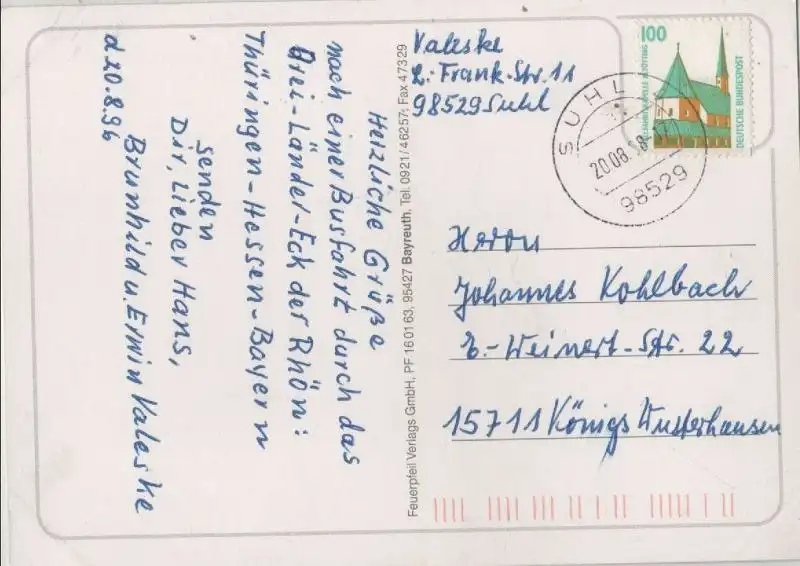 Herzliche Grüße
nach einer Busfahrt durch das
Drei-Länder-Eck der Rhön:
Thüringen-Hessen-Bayern
senden
Dir, lieber Hans,
Brunhild u. Erwin Valeske
d 20.8.96
Feuerpfeil Verlags GmbH, PF 16 01 63, 95427 Bayreuth, Tel. 09 21 / 4 62 57; Fax 4 73 29
Valeske
L.-Frank-Str. 11
98529 Suhl
100
DEUTSCHE BUNDESPOST
SUHL
20.08.
98529
Herrn
Johannes Kohlbach
E.-Weinert-Str. 22
15711 Königs Wusterhausen